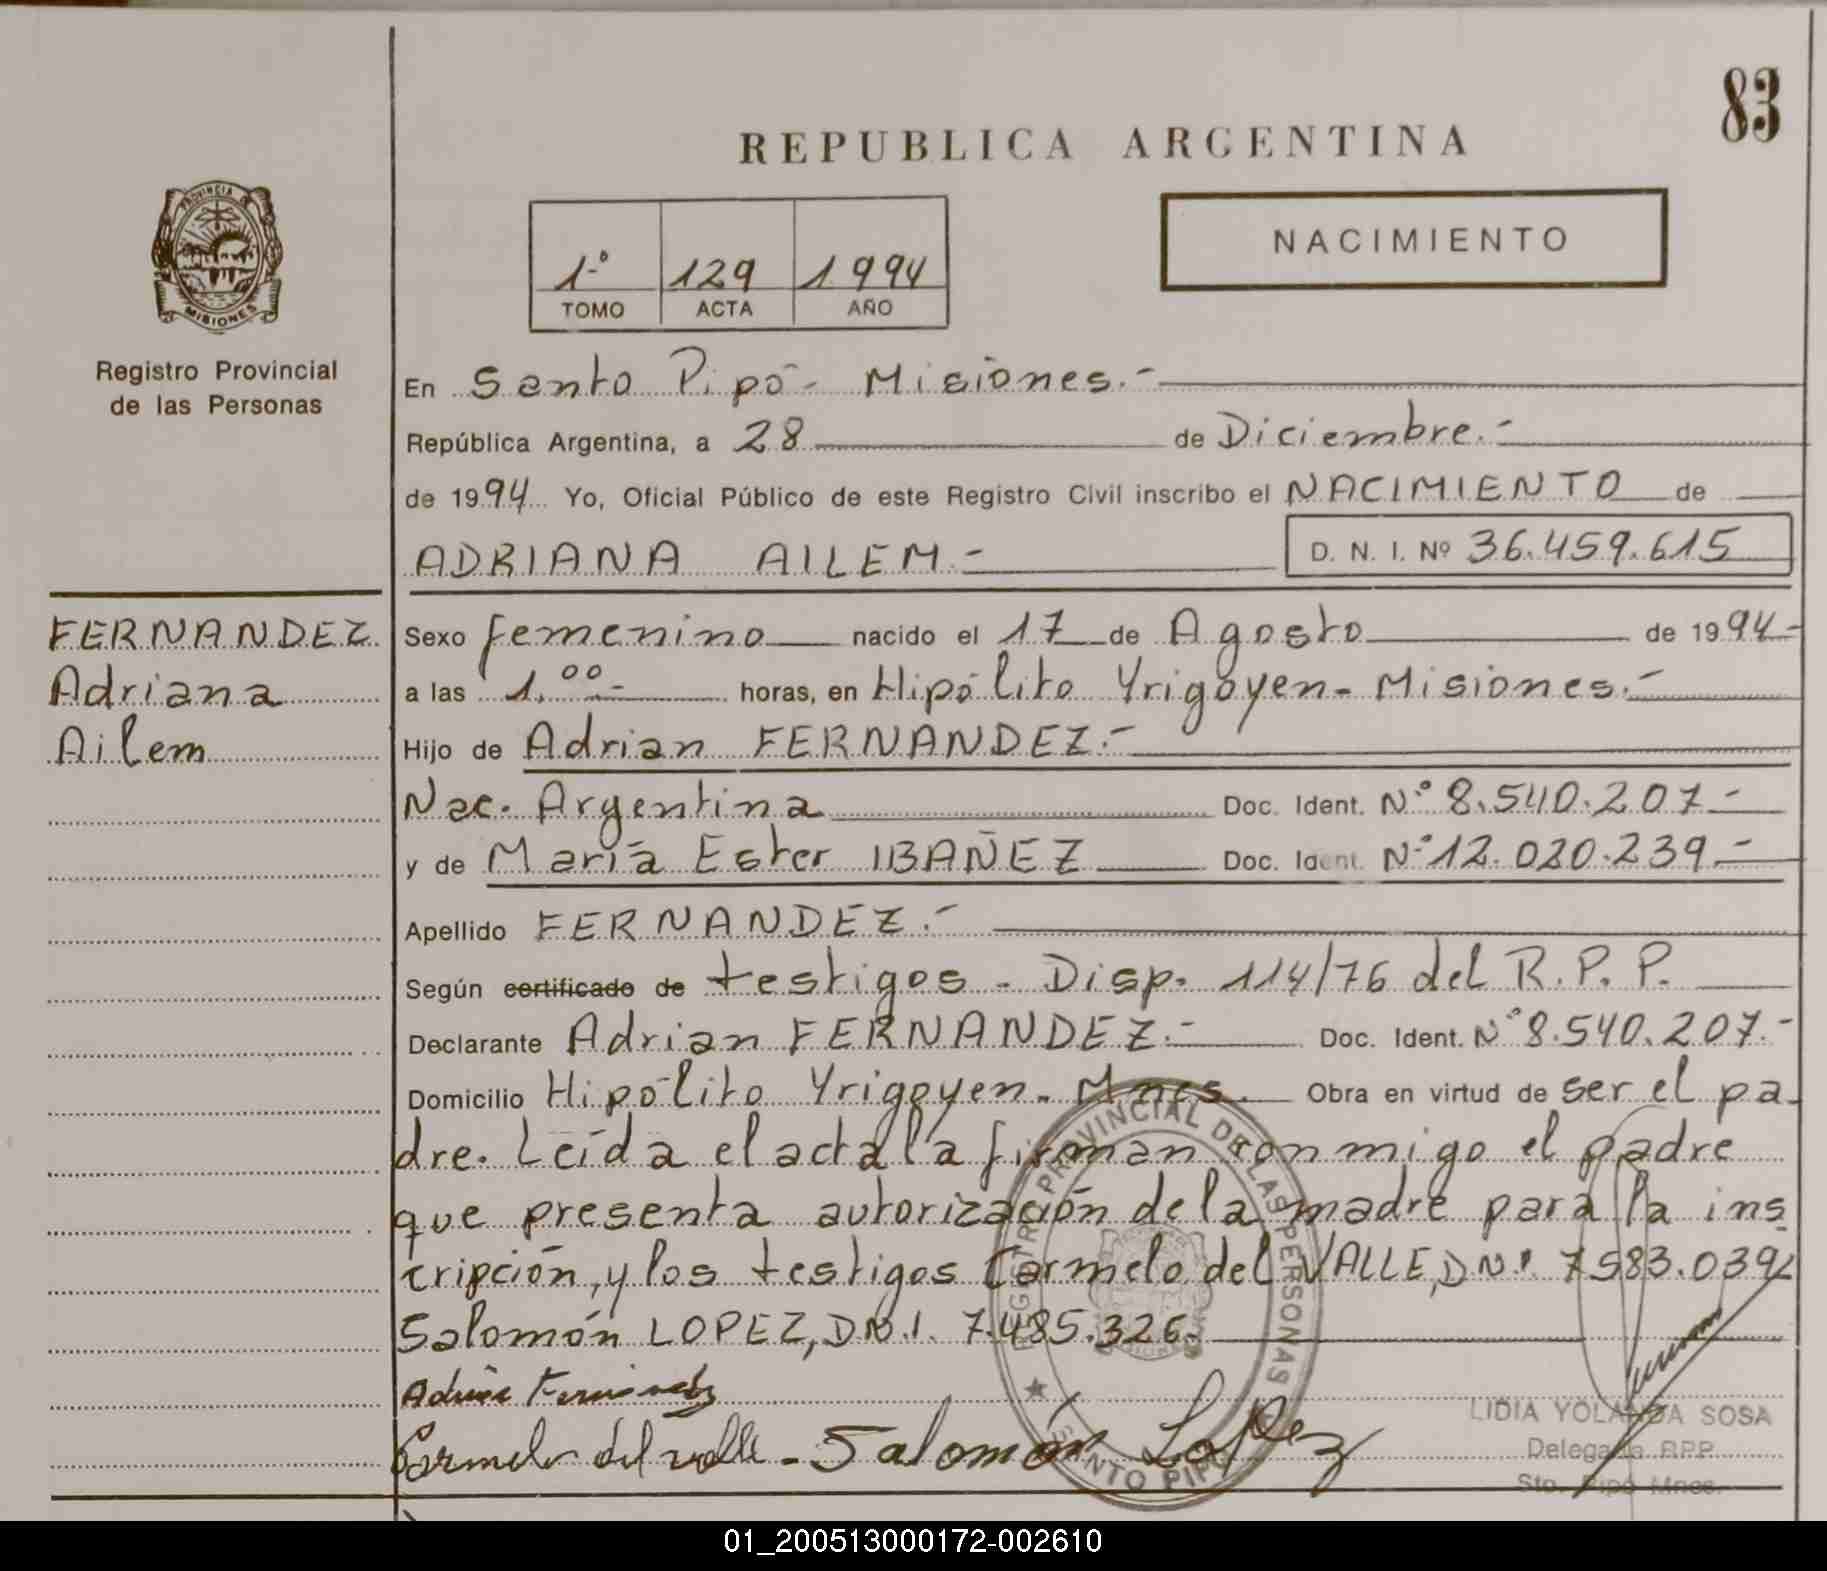 83
REPUBLICA ARGENTINA
PROVINCIA DE
MISIONES
1º 129 1994
TOMO ACTA AÑO
NACIMIENTO
Registro Provincial
de las Personas
En Santo Pipó - Misiones.-
República Argentina, a 28 de Diciembre.-
de 1994 Yo, Oficial Público de este Registro Civil inscribo el NACIMIENTO de
ADRIANA AILEM.- D. N. I. Nº 36.459.615
FERNANDEZ
Adriana
Ailem
Sexo femenino nacido el 17 de Agosto de 1994-
a las 1.00- horas, en Hipólito Yrigoyen- Misiones.-
Hijo de Adrian FERNANDEZ.-
Nac. Argentina Doc. Ident. Nº 8.540.207-
y de María Ester IBAÑEZ Doc. Ident. Nº 12.020.239.-
Apellido FERNANDEZ.-
Según certificado de testigos - Disp. 114/76 del R.P.P.
Declarante Adrian FERNANDEZ.- Doc. Ident. Nº 8.540.207.-
Domicilio Hipólito Yrigoyen- Mnes. Obra en virtud de ser el pa-
dre. Leída el acta la firman conmigo el padre
que presenta autorización de la madre para la ins
cripción, y los testigos Carmelo del VALLE, DN.I. 7583.039
Salomón LOPEZ, DN.I. 7.485.326.-
Adrian Fernandez
Carmelo del valle - Salomón Lopez
REGISTRO PROVINCIAL DE LAS PERSONAS
SANTO PIPO
LIDIA YOLANDA SOSA
Delegada RPP
Sto. Pipó Mnes.
01_200513000172-002610